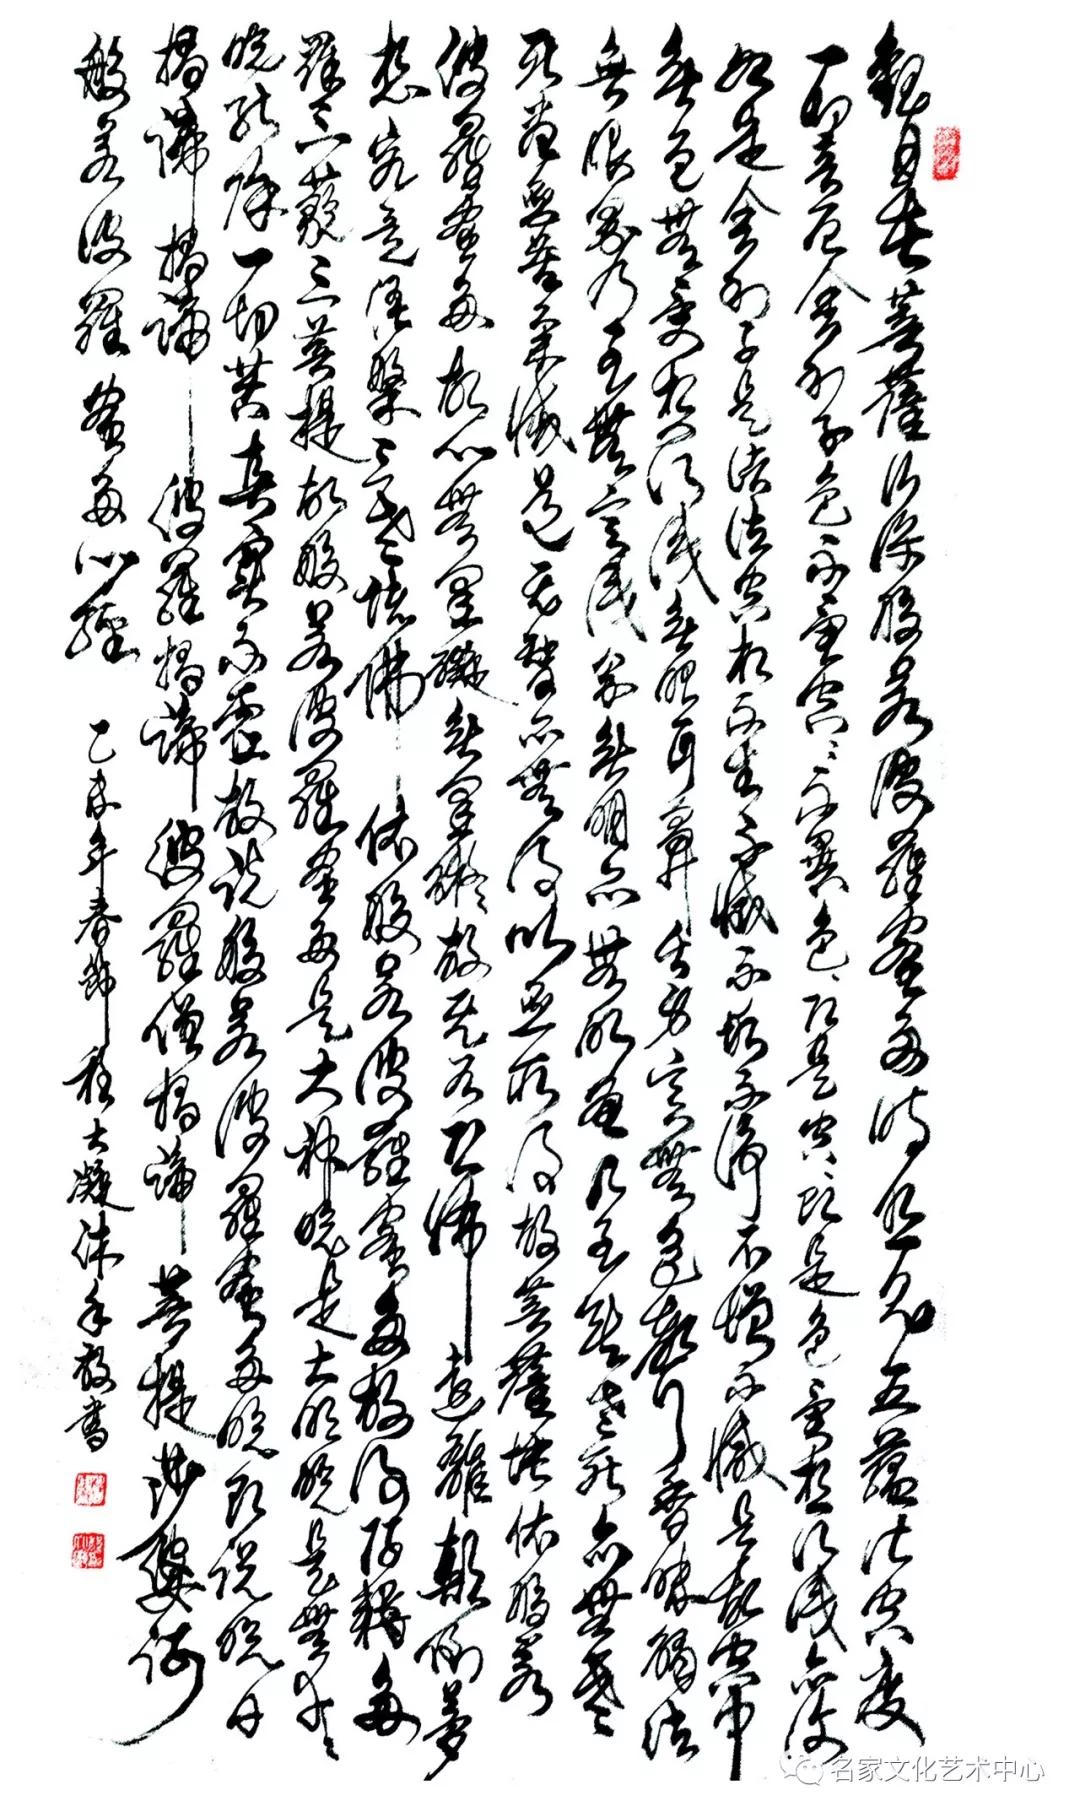 觀自在菩薩行深般若波羅蜜多時照見五蘊皆空度
一切苦厄舍利子色不異空空不異色色即是空空即是色受想行識亦復
如是舍利子是諸法空相不生不滅不垢不淨不增不減是故空中
無色無受想行識無眼耳鼻舌身意無色聲香味觸法
無眼界乃至無意識界無無明亦無無明盡乃至無老死亦無老
死盡無苦集滅道無智亦無得以無所得故菩提薩埵依般若
波羅蜜多故心無罣礙無罣礙故無有恐怖遠離顛倒夢
想究竟涅槃三世諸佛依般若波羅蜜多故得阿耨多
羅三藐三菩提故般若波羅蜜多是大神咒是大明咒是無上
咒能除一切苦真實不虛故說般若波羅蜜多咒即說咒曰
揭諦揭諦波羅揭諦波羅僧揭諦菩提莎婆訶
般若波羅蜜多心經
乙未年春節程大凝沐手敬書
名家文化艺术中心